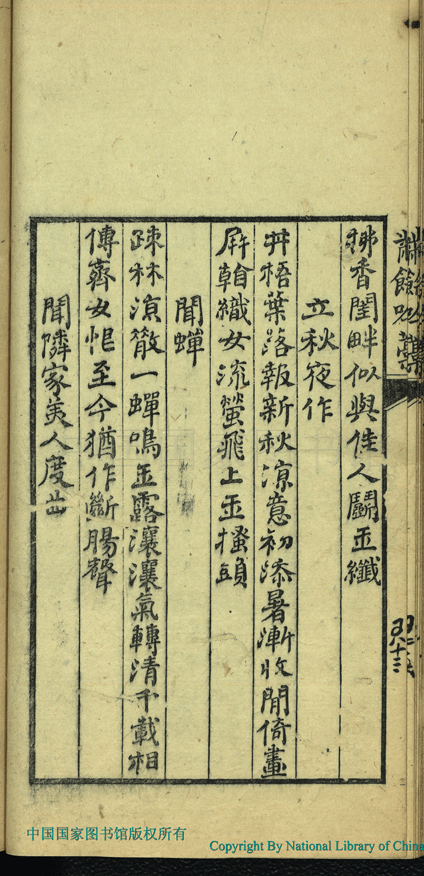 拂香閨畔似與佳人鬭玉纖
立秋夜作
井梧葉落報新秋涼意初添暑漸收閒倚畫
屏看織女流螢飛上玉搔頭
聞蟬
疎林涼散一蟬鳴玉露瀼瀼氣轉清千載相
傳齊女恨至今猶作斷腸聲
聞隣家美人度曲
繡餘吟藁
中国国家图书馆版权所有
Copyright By National Library of China